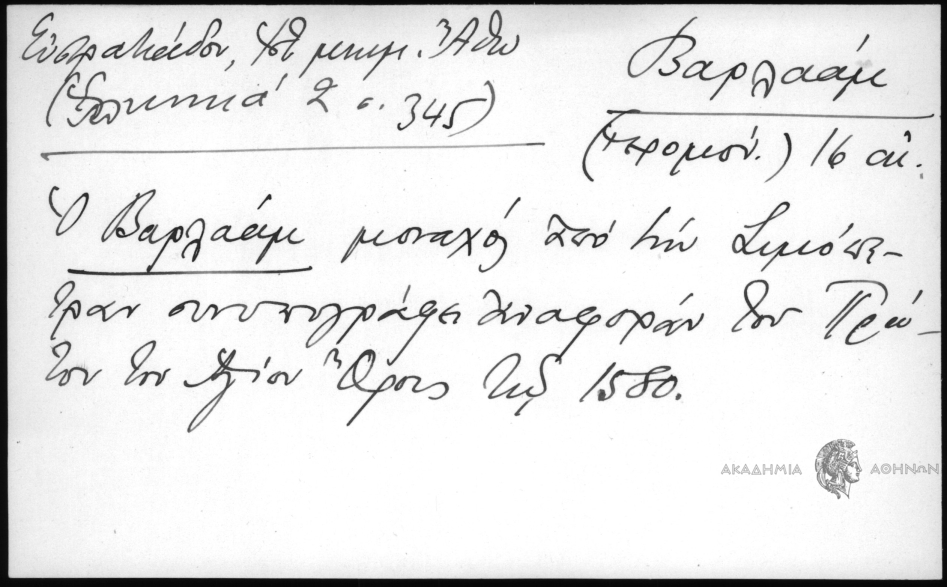 Εὐστρατιάδου, Ἱστ. μνημ. Ἄθω
(Ἑλληνικά 2 σ. 345)
Βαρλαάμ
(Ἱερομον.) 16 αἰ.
Ὁ Βαρλαάμ μοναχός ἀπό τήν Σιμόπε-
τραν συνυπογράφει ἀναφοράν του Πρώ-
του του Ἁγίου Ὄρους τῷ 1580.
ΑΚΑΔΗΜΙΑ ΑΘΗΝΩΝ